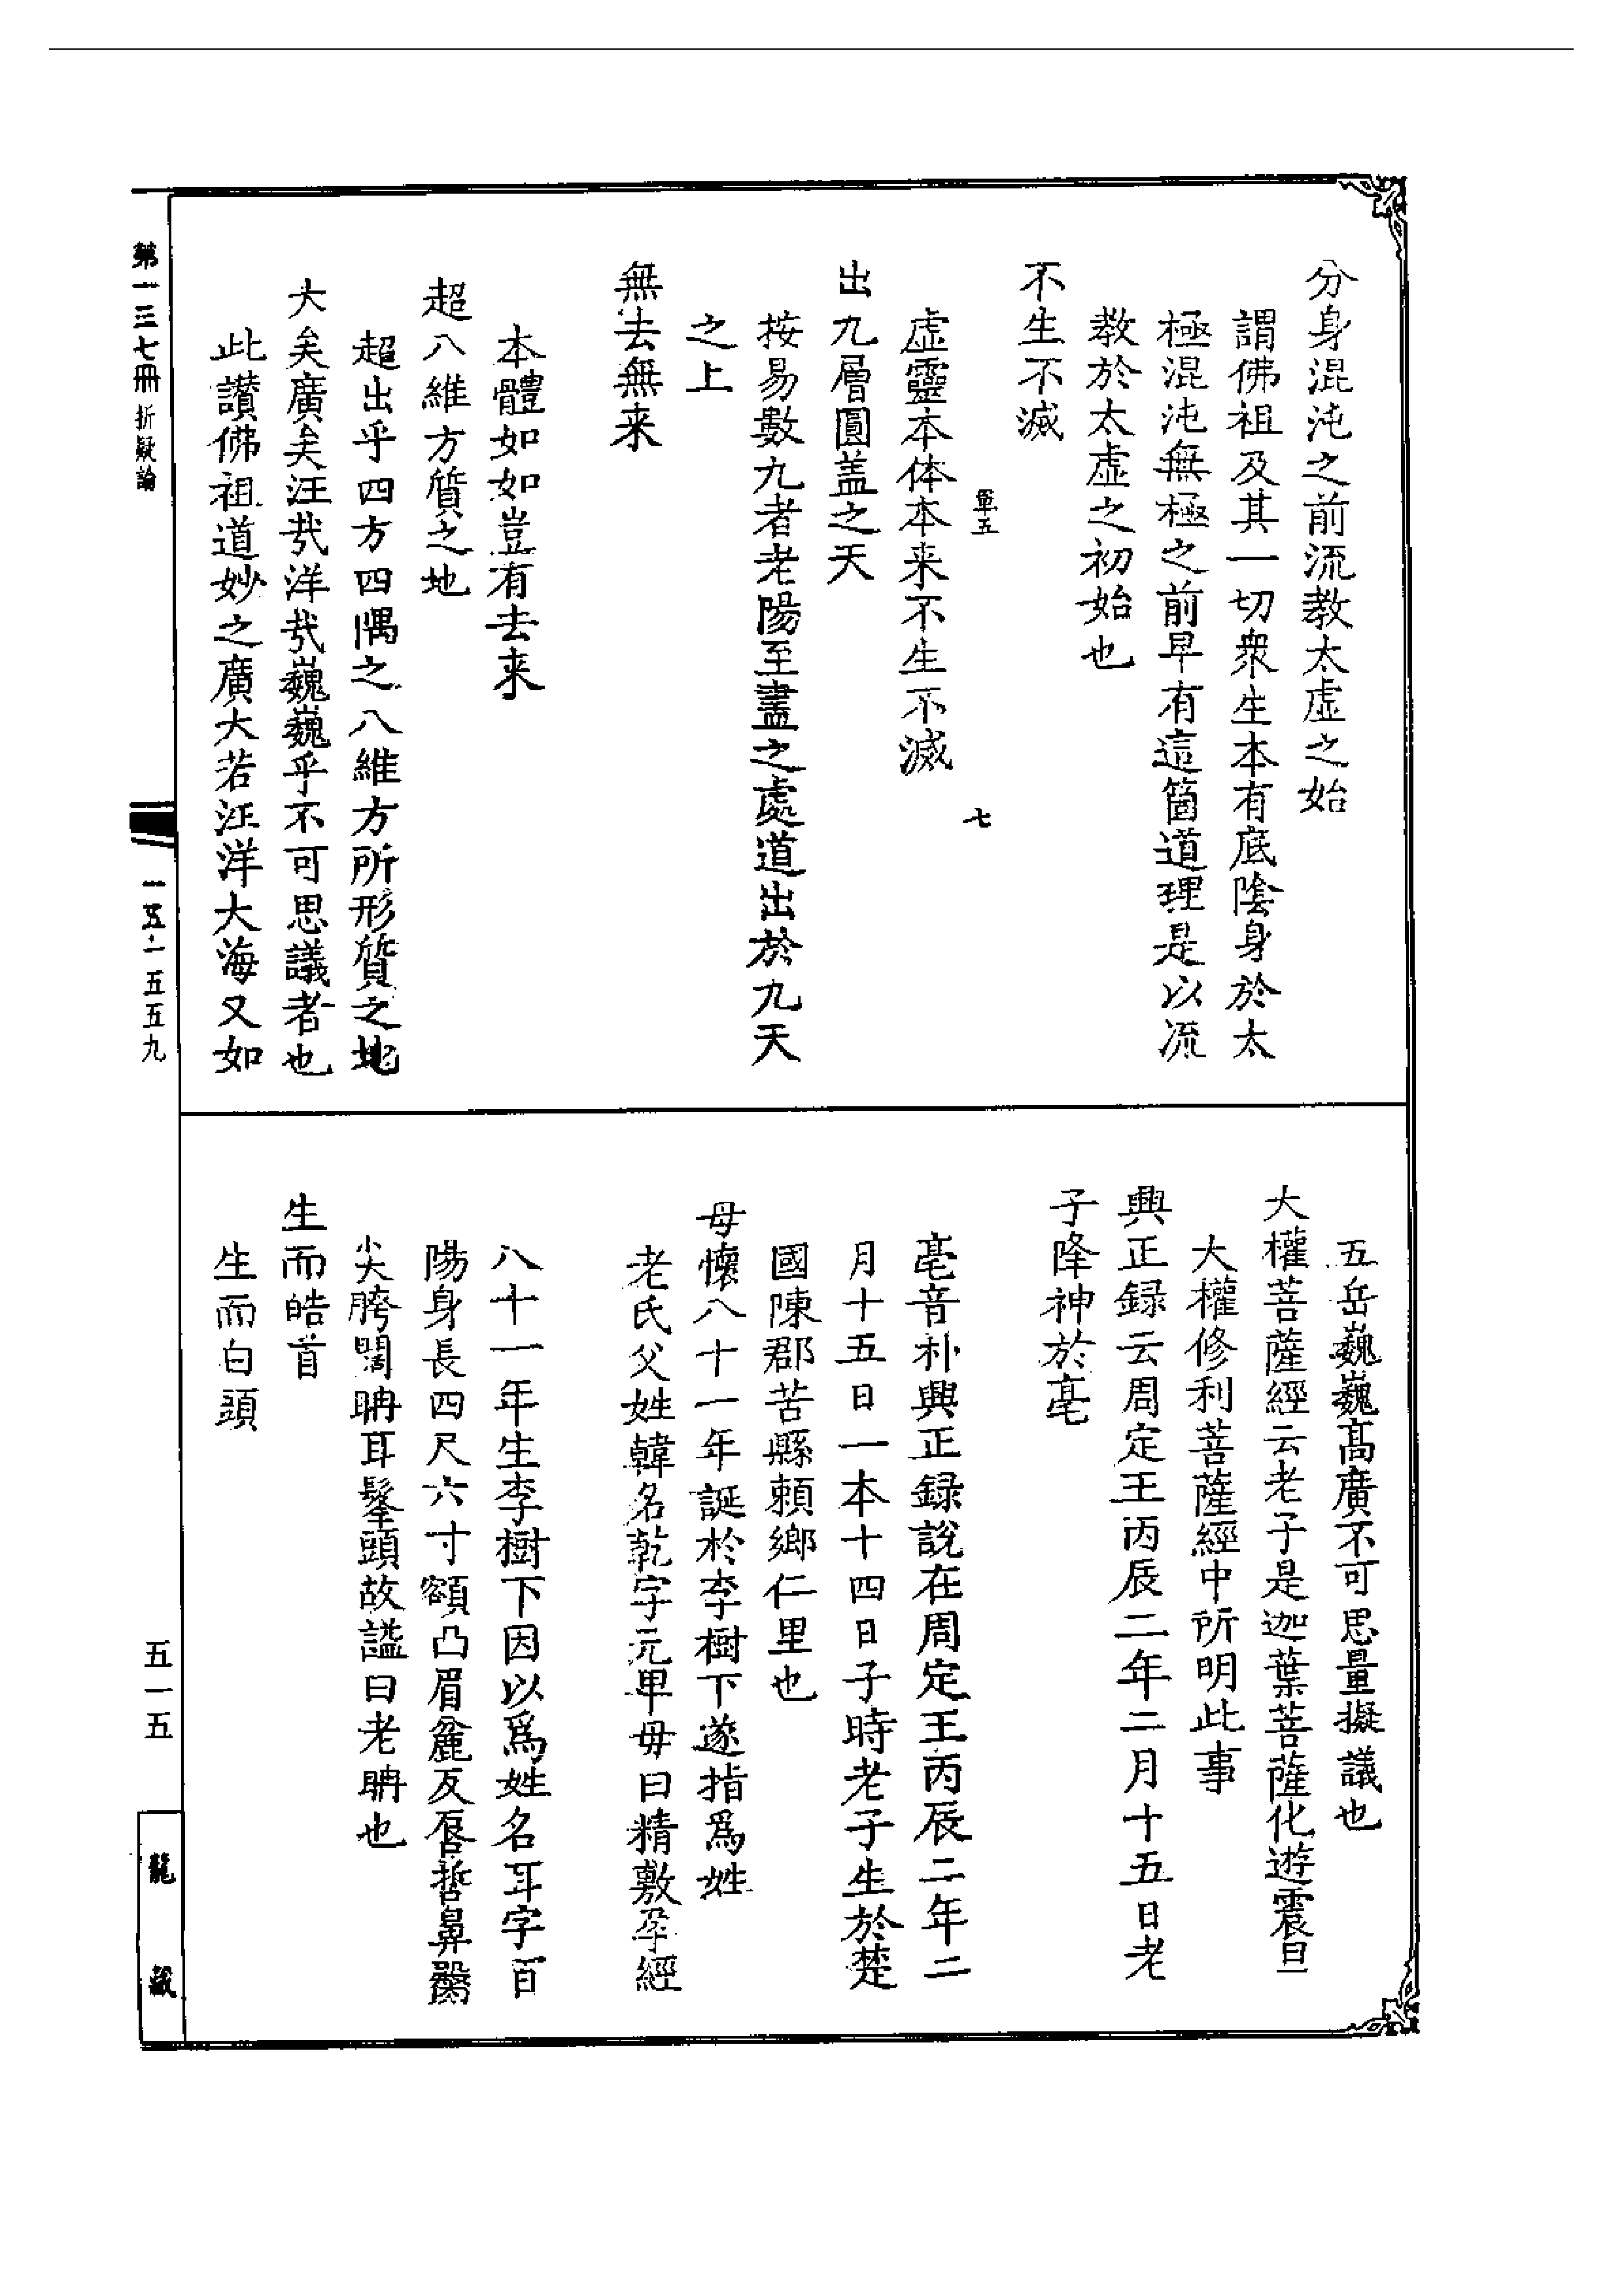 分身混沌之前流教太虛之始
謂佛祖及其一切衆生本有底陰身於太
極混沌無極之前早有這箇道理是以流
教於太虛之初始也
不生不滅
軍五
七
虛靈本体本来不生不滅
出九層圓盖之天
按易數九者老陽至盡之處道出於九天
之上
無去無来
本體如如豈有去来
超八維方質之地
超出乎四方四隅之八維方所形質之地
大矣廣矣汪哉洋哉巍巍乎不可思議者也
此讃佛祖道妙之廣大若汪洋大海又如
五岳巍巍髙廣不可思量擬議也
大權菩薩經云老子是迦葉菩薩化遊震旦
大權修利菩薩經中所明此事
興正録云周定王丙辰二年二月十五日老
子降神於亳
亳音朴興正録說在周定王丙辰二年二
月十五日一本十四日子時老子生於楚
國陳郡苦縣賴鄉仁里也
母懷八十一年誕於李樹下遂指爲姓
老氏父姓韓名乾字元卑母曰精敷孕經
八十一年生李樹下因以爲姓名耳字百
陽身長四尺六寸額凸眉麄反唇哲鼻齾
尖胯闊聃耳髼頭故謚曰老聃也
生而皓首
生而白頭
第一三七冊 折疑論
一五一 五五九
五一五
龍藏